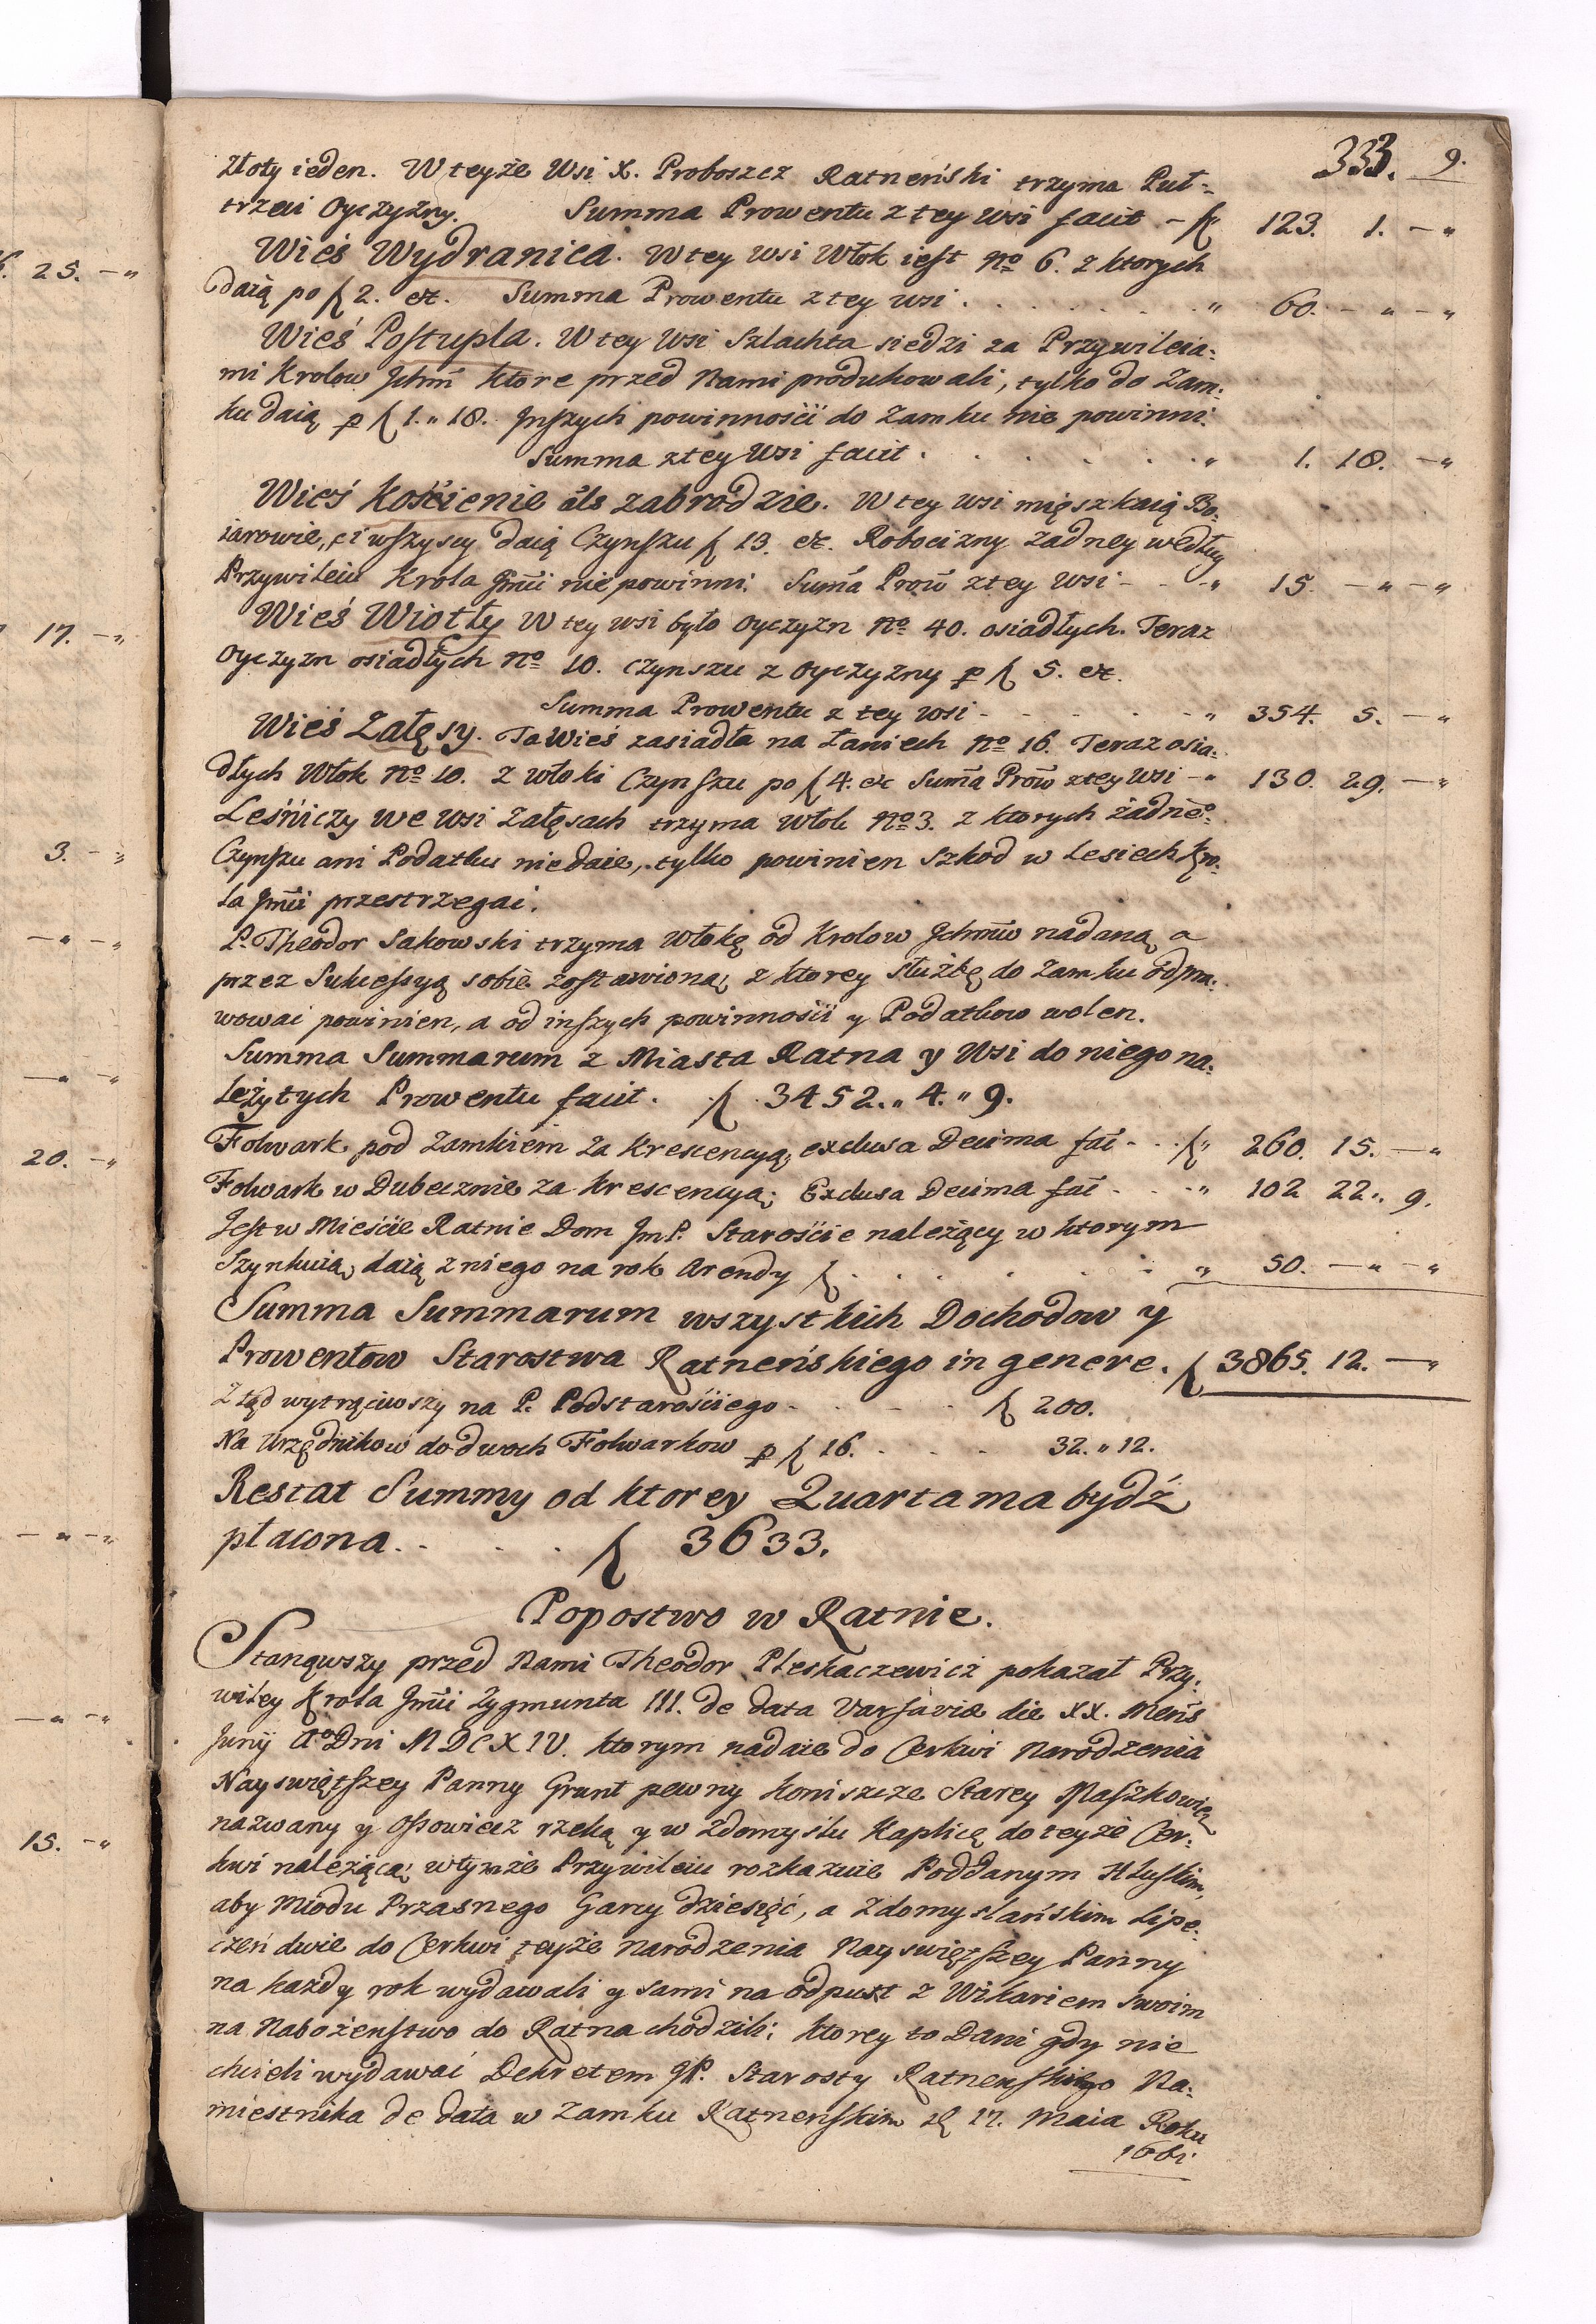 333. 9.
złoty ieden. W teyże Wsi X. Proboszcz Ratneński trzyma Puł-
trzeci Oyczyzny. Summa Prowentu z tey wsi facit - ƒ" 123. 1. — "
Wieś Wydranica. W tey wsi Włok iest No 6. z ktorych
daią po ƒ 2. etc. Summa Prowentu z tey wsi . . . . . . " 60. — " — "
Wieś Postupla. W tey Wsi Szlachta siedzi za Przywileia-
mi Krolow Jchm ktore przed Nami produkowali, tylko do Zam-
ku daią p ƒ 1. " 18. Jnszych powinności do Zamku nie powinni.
Summa z tey Wsi facit . . . . . . " 1. 18. — "
Wieś Kościenie als Zabrodzie. W tey wsi mięszkaią Bo-
iarowie, ci wszyscy daią Czynszu ƒ 13. etc. Robocizny żadney według
Przywileiu Krola Jmci nie powinni. Suma Prow z tey wsi - - - " 15. — " — "
Wieś Wiotły W tey wsi było Oyczyzn No 40. osiadłych. Teraz
Oyczyzn osiadłych No 10. czynszu z Oyczyzny p ƒ 5. etc.
Summa Prowentu z tey wsi - - - - - " 354. 5. — "
Wieś Załęsy. Ta Wieś zasiadła na Łaniech No 16. Teraz osia-
dłych Włok No 10. z włoki Czynszu po ƒ 4. etc Suma Prow z tey wsi - " 130. 29. — "
Leśniczy we wsi Załęsach trzyma włok No 3. z ktorych żadneo
Czynszu ani Podatku niedaie, tylko powinien Szkod w Lesiech Kro-
la Jmci przestrzegać.
P. Theodor Sakowski trzyma włokę od Krolow Jchmciow nadaną a
przez Sukcessyą sobie zostawioną, z ktorey służbę do Zamku odpra-
wować powinien, a od inszych powinności y Podatkow wolen.
Summa Summarum z Miasta Ratna y Wsi do niego na-
leżytych Prowentu facit . ƒ . 3452. " 4. " 9.
Folwark pod Zamkiem za Krescencyą, exclusa Decima fac̄ - . . ƒ " 260. 15. — "
Folwark w Dubecznie za Krescencyą; Exclusa Decima fac̄ - . . " 102 22. " 9.
Jest w Mieście Ratnie Dom Jm P. Starościе należący w ktorym
Szynkuią, daią z niego na rok Arendy ƒ . . . . . . " 50. — " — "
Summa Summarum wszystkich Dochodow y
Prowentow Starostwa Ratneńskiego in genere . ƒ 3865. 12. — "
Ztąd wytrąciwszy na P. Podstarościego - . . . . ƒ 200.
Na Urzędnikow do dwoch Folwarkow p ƒ 16. . . . . 32. " 12.
Restat Summy od ktorey Quarta ma bydź
płacona. . . . . ƒ 3633.
Popostwo w Ratnie.
Stanąwszy przed Nami Theodor Pleskaczewicż pokazał Przy-
wiley Krola Jmci Zygmunta III. de data Varsavie die XX. Mens
Junij Ao Dni MDCXIV. ktorym nadaie do Cerkwi Narodzenia
Nayswiętszey Panny Grunt pewny Koniszcze Starey Maszkowicz
nazwany y Ossowiecz rzeką y w Zdomyślu Kaplicę do teyże Cer-
kwi należącą; w tymże Przywileiu rozkazuie Poddanym Hłuskim,
aby Miodu Przasnego Garcy dziesięć, a Zdomyslańskim Lipe-
czeń dwie do Cerkwi teyże Narodzenia Nayswiętszey Panny
na każdy rok wydawali y sami na odpust z Wikariem swoim
na Nabożenstwo do Ratna chodzili; ktorey to Dani gdy nie
chcieli wydawać Dekretem JP. Starosty Ratnenskiego Na-
miestnika de data w Zamku Ratnenskim d 17. Maia Roku
1661
6. 25. — "
17. — "
3. — "
— " — "
— " — "
20. — "
— " — "
— " — "
15. — "